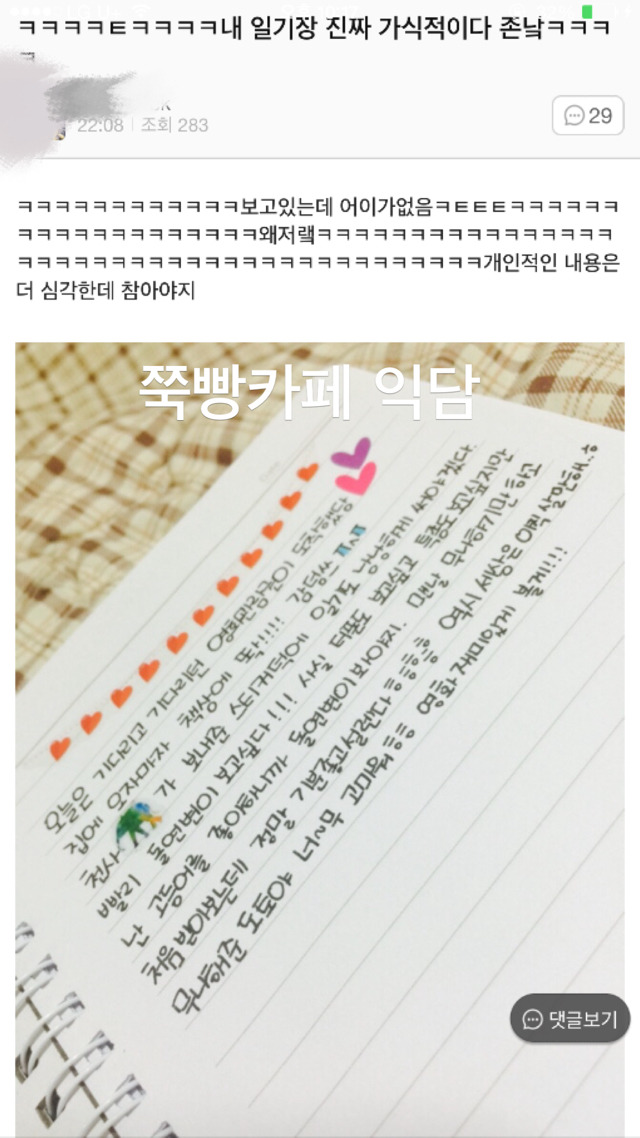 ㅋㅋㅋㅋㅌㅋㅋㅋㅋ내 일기장 진짜 가식적이다 존낰ㅋㅋㅋ
ㅋ
22:08 조회 283
29
ㅋㅋㅋㅋㅋㅋㅋㅋㅋㅋㅋㅋ보고있는데 어이가없음ㅋㅌㅌㅌㅋㅋㅋㅋㅋㅋ
ㅋㅋㅋㅋㅋㅋㅋㅋㅋㅋㅋㅋㅋ왜저랰ㅋㅋㅋㅋㅋㅋㅋㅋㅋㅋㅋㅋㅋㅋㅋㅋ
ㅋㅋㅋㅋㅋㅋㅋㅋㅋㅋㅋㅋㅋㅋㅋㅋㅋㅋㅋㅋㅋㅋㅋㅋㅋ개인적인 내용은
더 심각한데 참아야지
쭉빵카페 익담
오늘은 기다리고 기다리던 영화관람권이 도착했당
집에 오자마자 책상에 똭!!!! 감덩쓰
천사 가 보내준 스티커덕에 일기도 낭낭하게 써야겠다
빨리 돌연변이 보고싶다!!! 사실 더폰도 보고싶고 특종도 보고싶지만
난 고등어를 좋아하니까 돌연변이 봐야지. 맨날 무나하기만 하고
처음 받아보는데 정말 기분좋고설렌다ㅎㅎㅎㅎ 역시 세상은 아직 살만해..
무나해준 도토야 너~무 고마워ㅎㅎ 영화 재미있게 볼게!!!
댓글보기